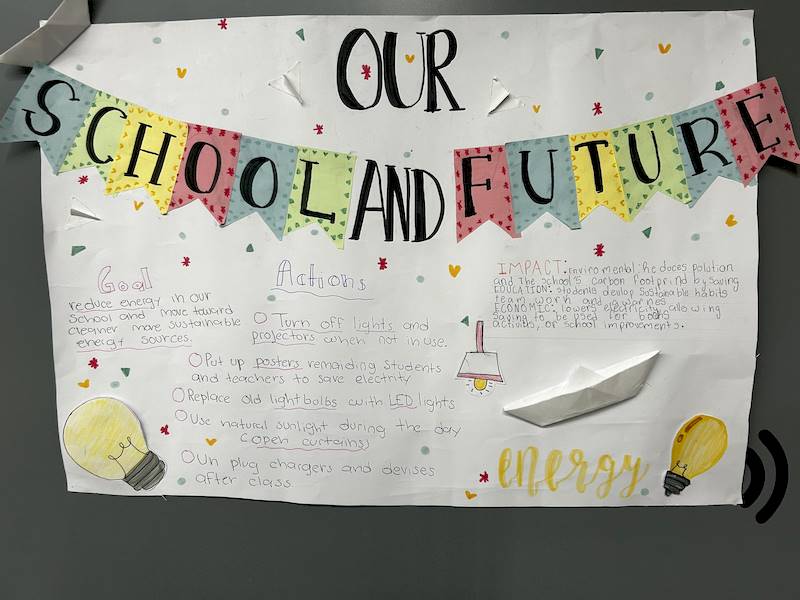 OUR
SCHOOL AND FUTURE
Goal
reduce energy in our
school and move toward
cleaner more sustainable
energy sources.
Actions
Turn off lights and
projectors when not in use.
Put up posters remanding students
and teachers to save electrity
Replace old lightbolbs with LED lights
Use natural sunlight during the day
(open curtainss)
Un plug chargers and devises
after class
IMPACT: enviromental: Reduces polution
and the school's carbon footprind by saving
EDUCATION: students devlop sustainable habits
team work and awarnes
ECONOMIC: lowers electricity, allowing
saving to be used for books
activities, or school improvements.
energy